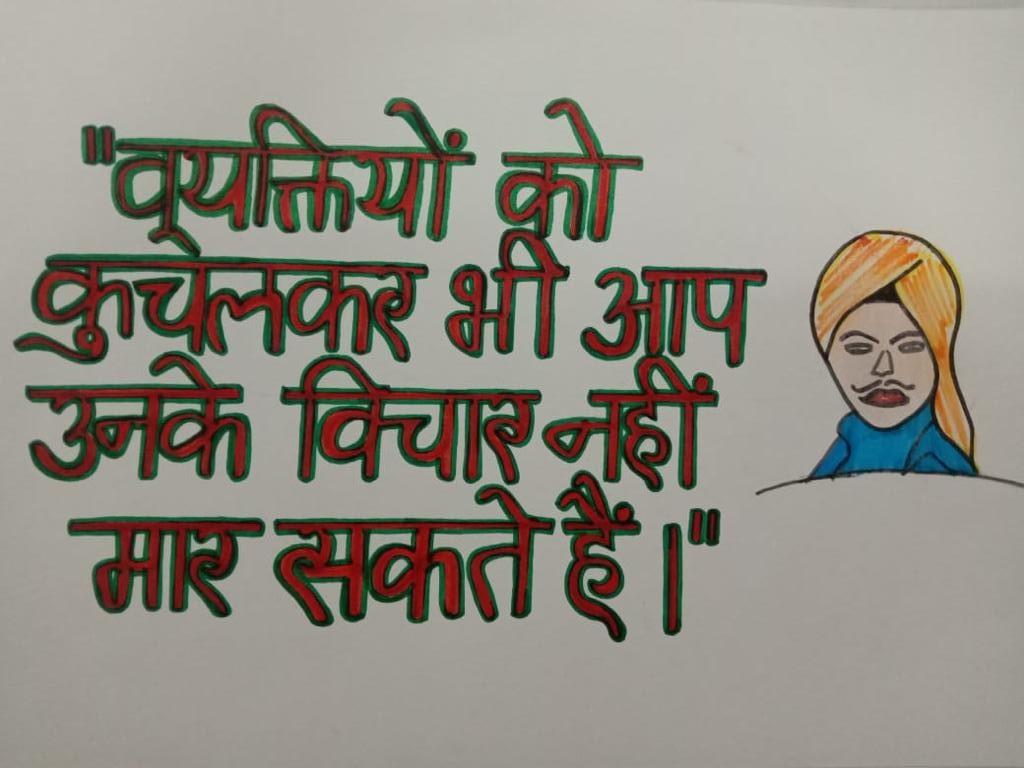 "व्यक्तियों को
कुचलकर भी आप
उनके विचार नहीं
मार सकते हैं।"